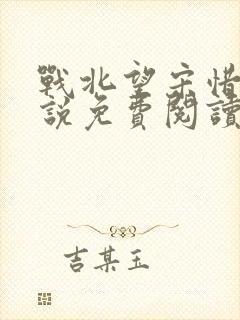 戰北望宋惜
說免費閱讀
吉某玉